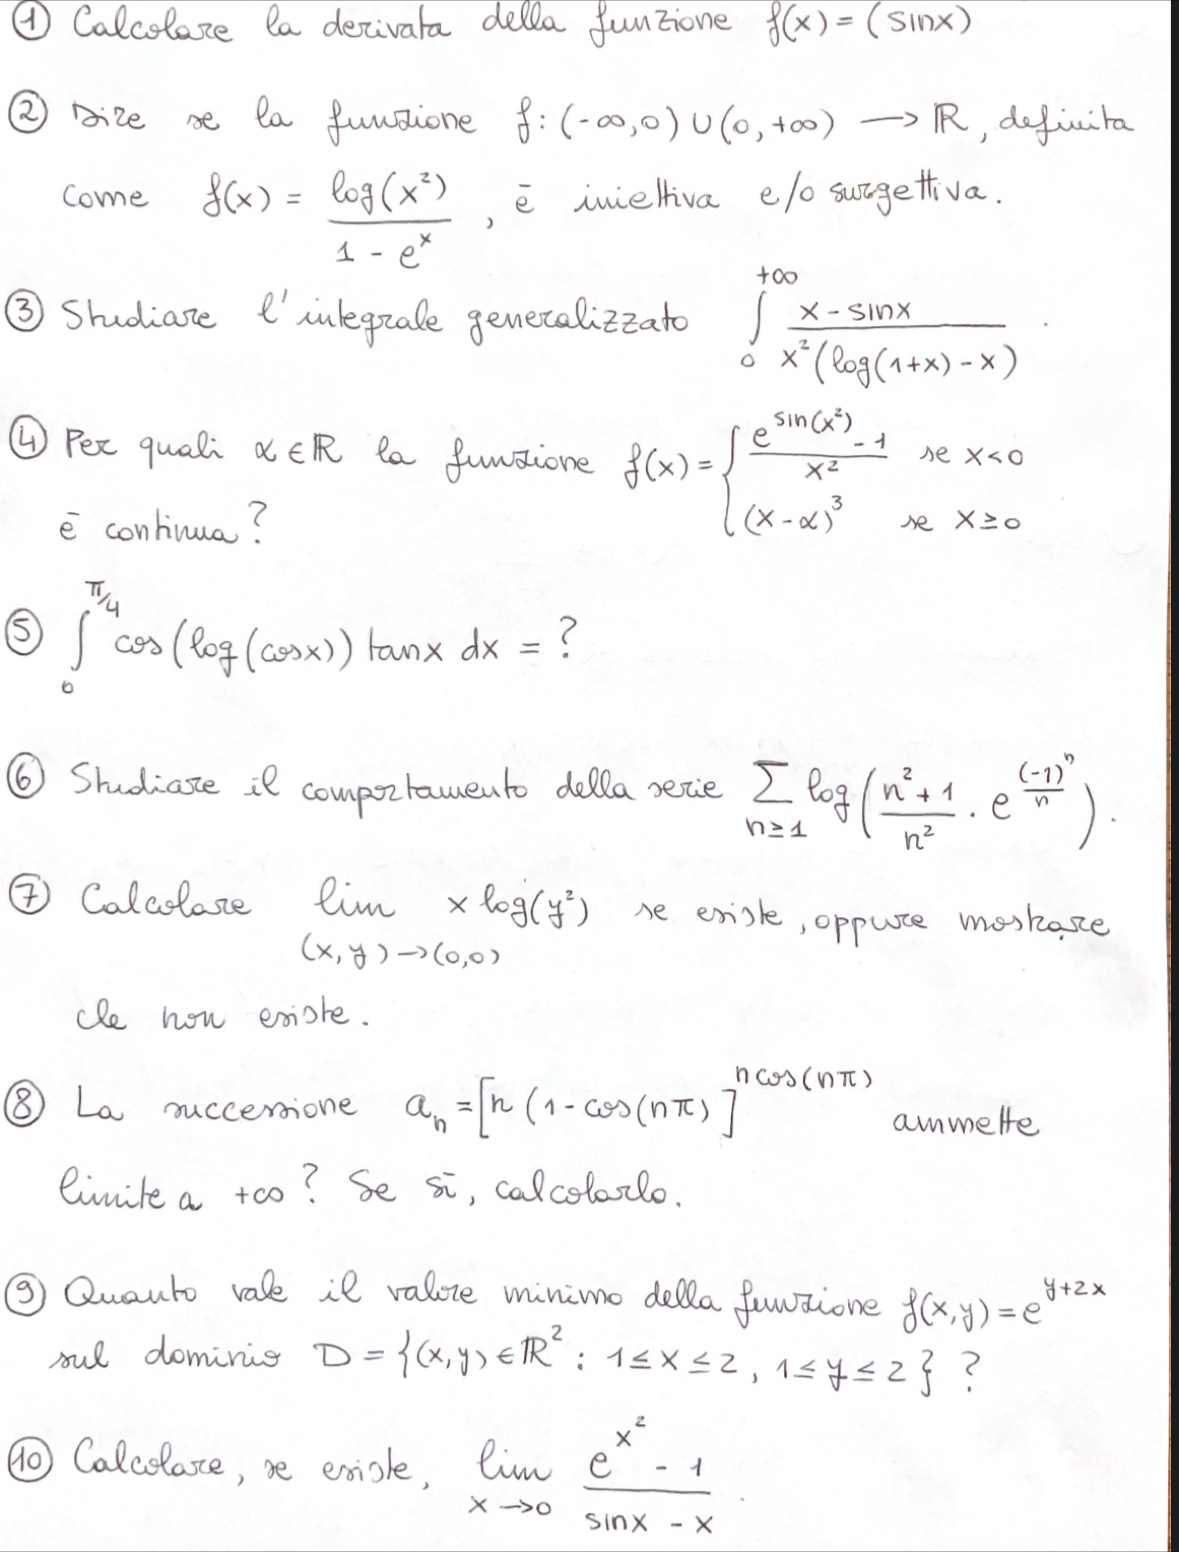 ① Calcolare la derivata della funzione f(x) = (sinx)
② Dire se la funzione f: (-∞,0) ∪ (0,+∞) → ℝ, definita
come f(x) = log(x²) / (1 - eˣ), è iniettiva e/o surgettiva.
③ Studiare l'integrale generalizzato ∫₀^{+∞} (x - sinx) / (x² (log(1+x) - x))
④ Per quali α ∈ ℝ la funzione f(x) = { (e^{sin(x²)} - 1) / x² se x<0
è continua? (x-α)³ se x≥0
⑤ ∫₀^{π/4} cos(log(cosx)) tanx dx = ?
⑥ Studiare il comportamento della serie ∑_{n≥1} log( (n²+1)/n² · e^{(-1)ⁿ/n} ).
⑦ Calcolare lim_{(x,y)→(0,0)} x log(y²) se esiste, oppure mostrare
che non esiste.
⑧ La successione aₙ = [n (1 - cos(nπ)]^{n cos(nπ)} ammette
limite a +∞? Se sì, calcolarlo.
⑨ Quanto vale il valore minimo della funzione f(x,y) = e^{y+2x}
sul dominio D = {(x,y) ∈ ℝ² : 1≤x≤2, 1≤y≤2} ?
⑩ Calcolare, se esiste, lim_{x→0} (e^{x²} - 1) / (sinx - x)